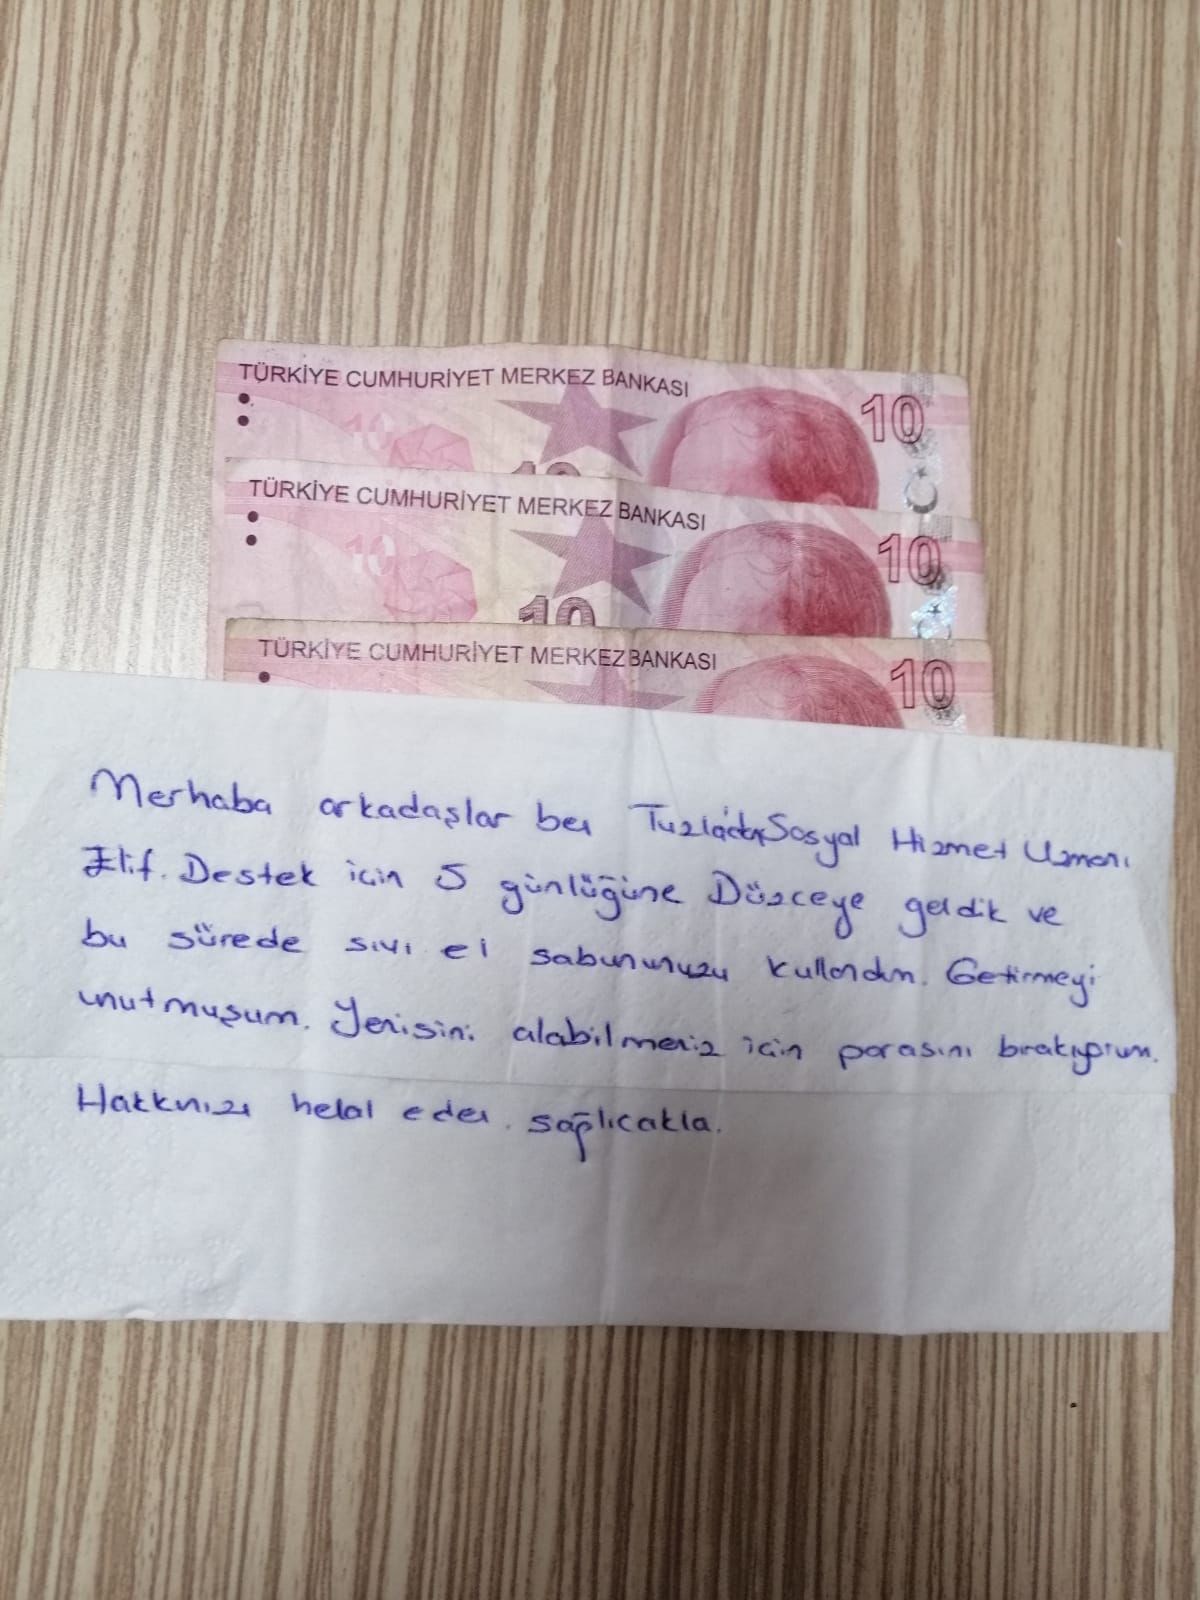 TÜRKİYE CUMHURİYET MERKEZ BANKASI
10
10
10
TÜRKİYE CUMHURİYET MERKEZ BANKASI
10
10
10
TÜRKİYE CUMHURİYET MERKEZ BANKASI
10
Merhaba arkadaşlar ben Tuzla'dan Sosyal Hizmet Uzmanı
Elif. Destek için 5 günlüğüne Düzceye geldik ve
bu sürede sıvı el sabununuzu kullandım. Getirmeyi
unutmuşum. Yenisini alabilmeniz için parasını bırakıyorum.
Hakkınızı helal eder. sağlıcakla.